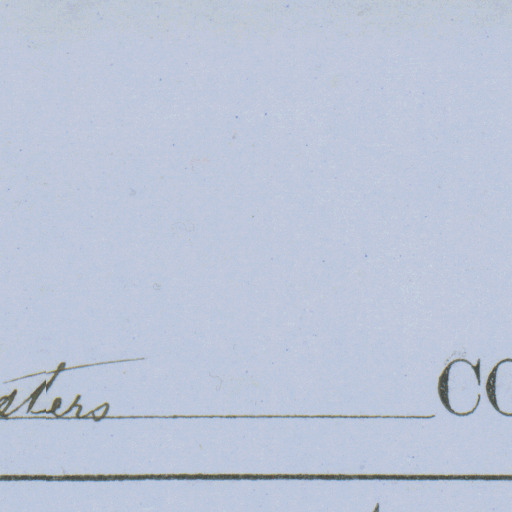 aters CO